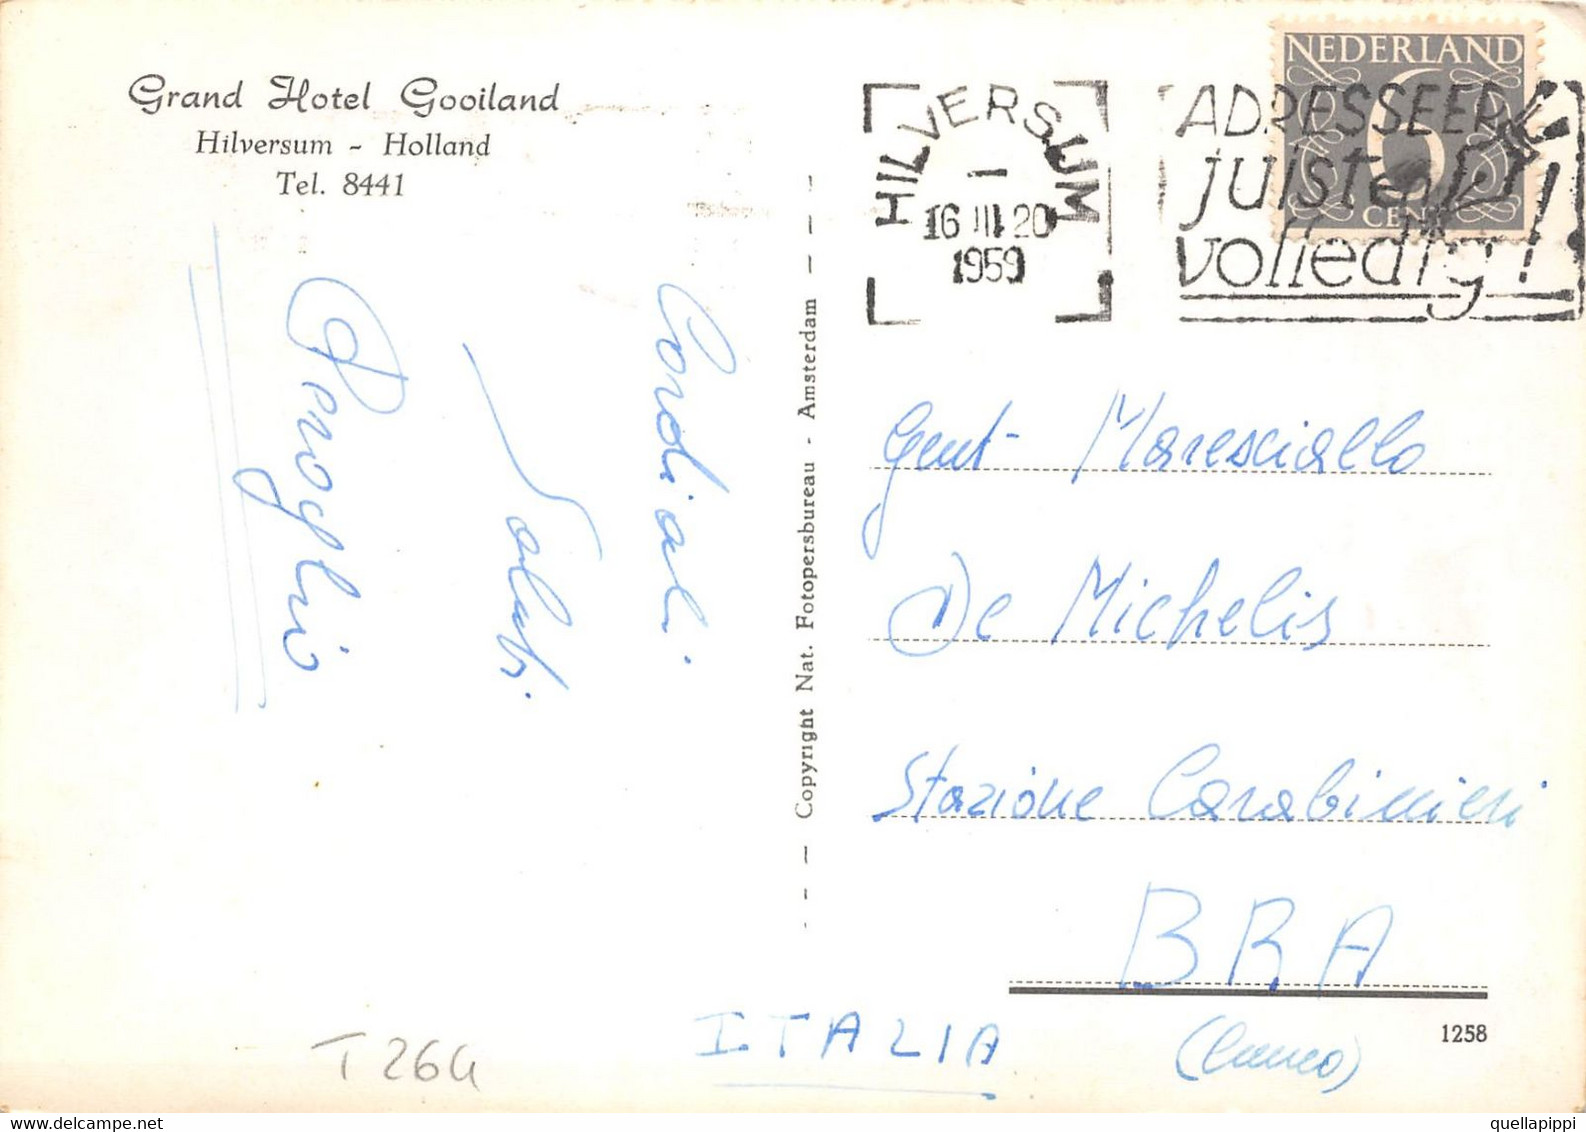 Grand Hotel Gooiland
Hilversum - Holland
Tel. 8441
Cordiali
Saluti
Copyright Nat. Fotopersbureau - Amsterdam
HILVERSUM
16 III 20
1959
ADRESSEER
juist en
volledig!
NEDERLAND
6
CENT
Gent Maresciallo
De Michelis
Stazione Carabinieri
BRA
(Cuneo)
ITALIA
1258
T 264
quellapippi